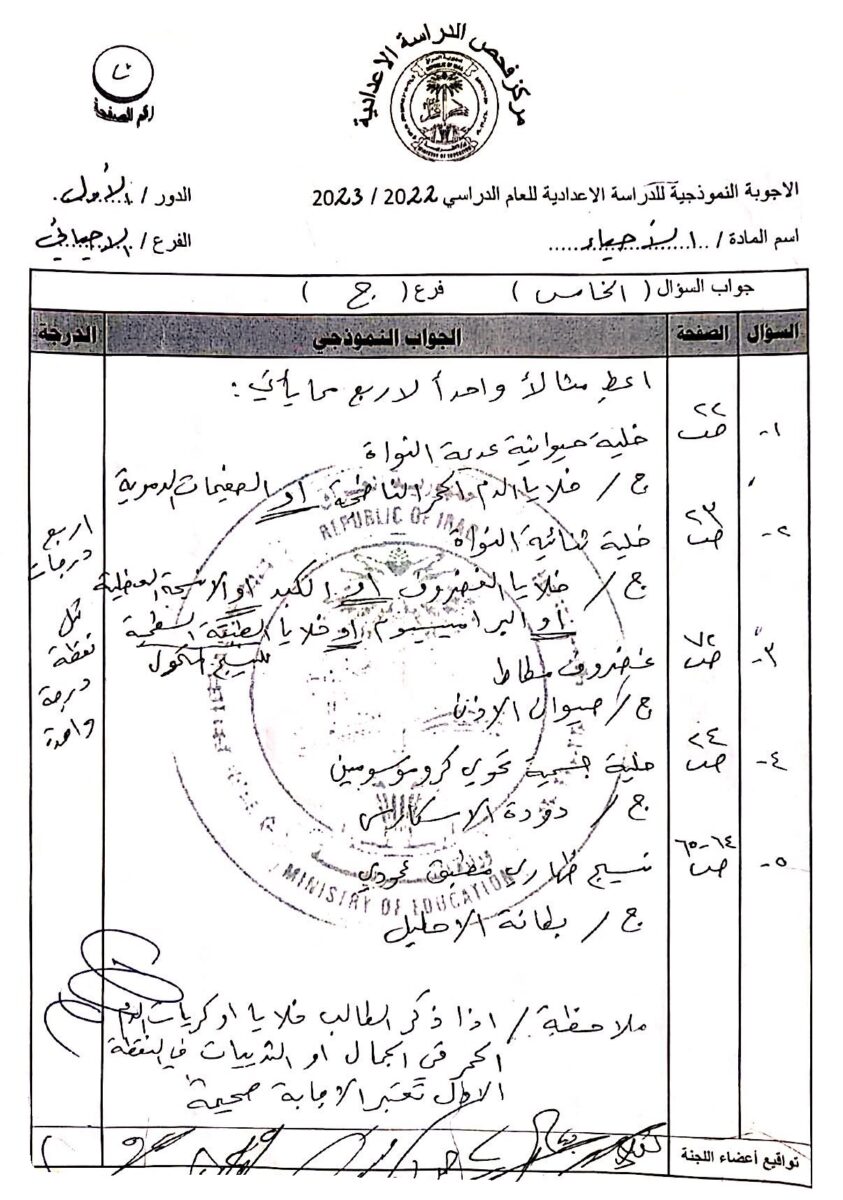 مركز فحص الدراسة الاعدادية
رقم الصفحة
الاجوبة النموذجية للدراسة الاعدادية للعام الدراسي 2022 / 2023
الدور / الأول
اسم المادة / الأحياء
الفرع / الاحيائي
جواب السؤال ( الخامس ) فرع ( ج )
السؤال الصفحة الجواب النموذجي الدرجة
اعطِ مثالاً واحداً لاربع مما يأتي :
١- ص ٢٢ خلية حيوانية عديمة النواة
ج / خلايا الدم الحمر الناضجة او الصفيحات الدموية
٢- ص ٢٣ خلية ثنائية النواة
ج / خلايا الغضروف او الكبد او الانسجة العضلية
او البراميسيوم او خلايا الطبقة السطحية
للنسيج المتحول
٣- ص ٧٢ غضروف مطاط
ج / صيوان الاذن
٤- ص ٢٤ خلية جسمية تحوي كروموسومين
ج / دودة الاسكارس
٥- ص ٦٤-٦٥ نسيج ظهاري مطبق عمودي
ج / بطانة الاحليل
اربع
درجات
لكل
نقطة
درجة
واحدة
ملاحظة / اذا ذكر الطالب خلايا او كريات الدم
الحمر في الجمال او الثدييات في النقطة
الاولى تعتبر الاجابة صحيحة
تواقيع أعضاء اللجنة
REPUBLIC OF IRAQ
MINISTRY OF EDUCATION